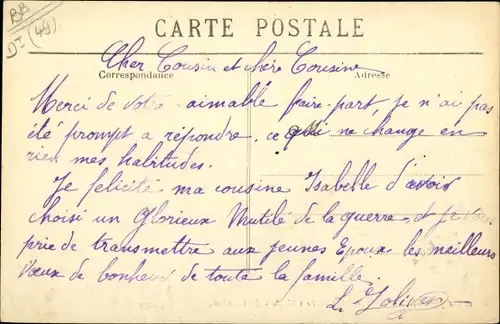 BB
DI (49)
CARTE POSTALE
Cher Cousin et chère Cousine
Correspondance Adresse
Merci de votre aimable faire-part, je n'ai pas
été prompt a répondre, ce qui ne change en
rien mes habitudes.
Je felicite ma cousine Isabelle d'avoir
choisi un Glorieux Mutilé de la guerre, et je vous
prie de transmettre aux jeunes Epoux les meilleurs
vœux de bonheur de toute la famille.